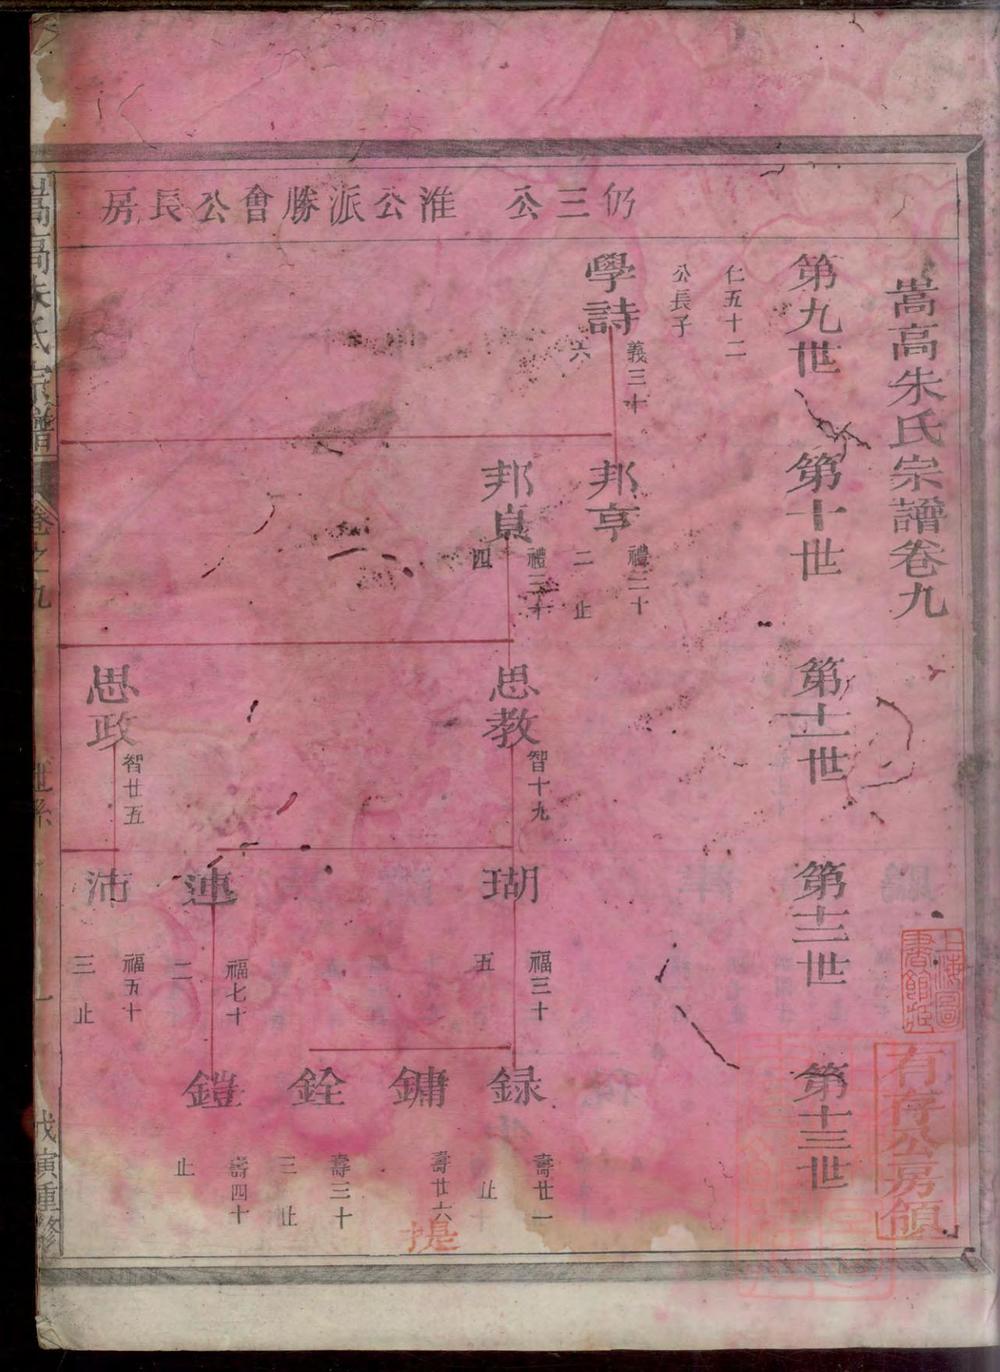 嵩高朱氏宗譜卷九
第九世
第十世
第十一世
第十二世
第十三世
仍三公 淮公派勝會公長房
仁五十二
公長子
學詩
義三十
六
邦亨
禮三十
二 止
邦貞
禮三十
四
思教
智十九
瑚
福三十
五
録
壽廿一
止
鏞
壽廿六
提
銓
壽三十
三 止
璉
福七十
二
鎧
壽四十
止
思政
智廿五
沛
福五十
三 止
嵩高朱氏宗譜
卷之九
世系
戊寅重修
上海圖書館藏
有存公房領